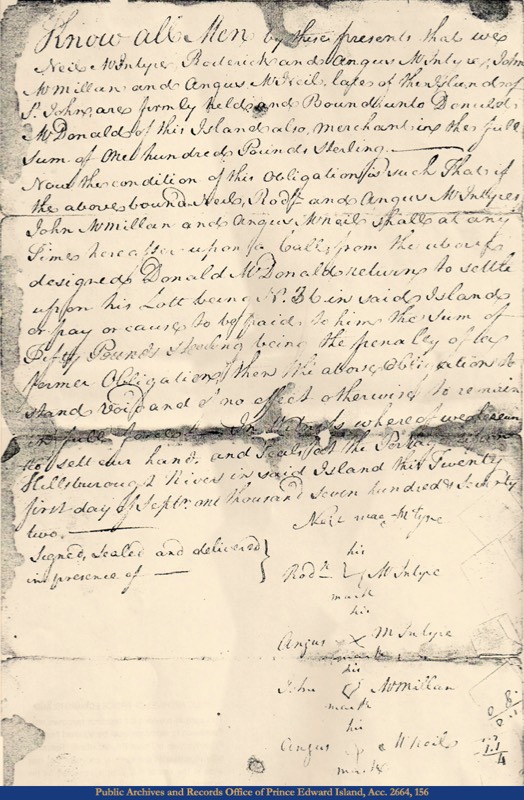 Know all Men by these presents that we
Neil McIntyre, Roderick and Angus McIntyre, John
McMillan and Angus McNeil, late of the Island of
St. John, are firmly held and Bound unto Donald
McDonald of this Island also, merchant in the full
Sum of One hundred Pounds Sterling.
Now the condition of this Obligation is such That if
the above bound Neil, Rodk and Angus McIntyres
John McMillan and Angus McNeil shall at any
Time hereafter upon a Call from the above
designed Donald McDonald return to settle
upon his Lott being No. 36 in said Island
or pay or cause to be paid to him the Sum of
Fifty Pounds Sterling being the penalty of
former Obligation, then the above Obligation to
stand Void and of no effect otherwise to remain
in full force. In Witness where of we
to sett our hands and Seals at the
Hillsborough River in said Island this Twenty
first day of Septr. one thousand Seven hundred & Seventy
two.
Signed, Sealed and delivered
in presence of
Neil McIntyre
his
Rodk McIntyre
mark
his
Angus X McIntyre
mark
his
John McMillan
mark
his
Angus McNeil
mark
Public Archives and Records Office of Prince Edward Island, Acc. 2664, 156